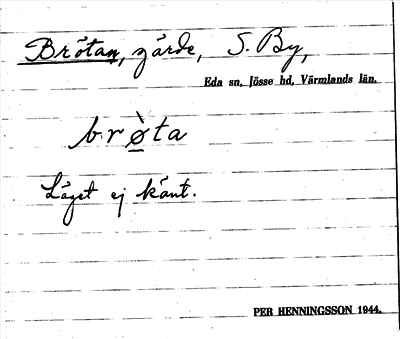 Brötan, gärde, S. By,
Eda sn, Jösse hd, Värmlands län.
brø̀ta
Läget ej känt.
PER HENNINGSSON 1944.